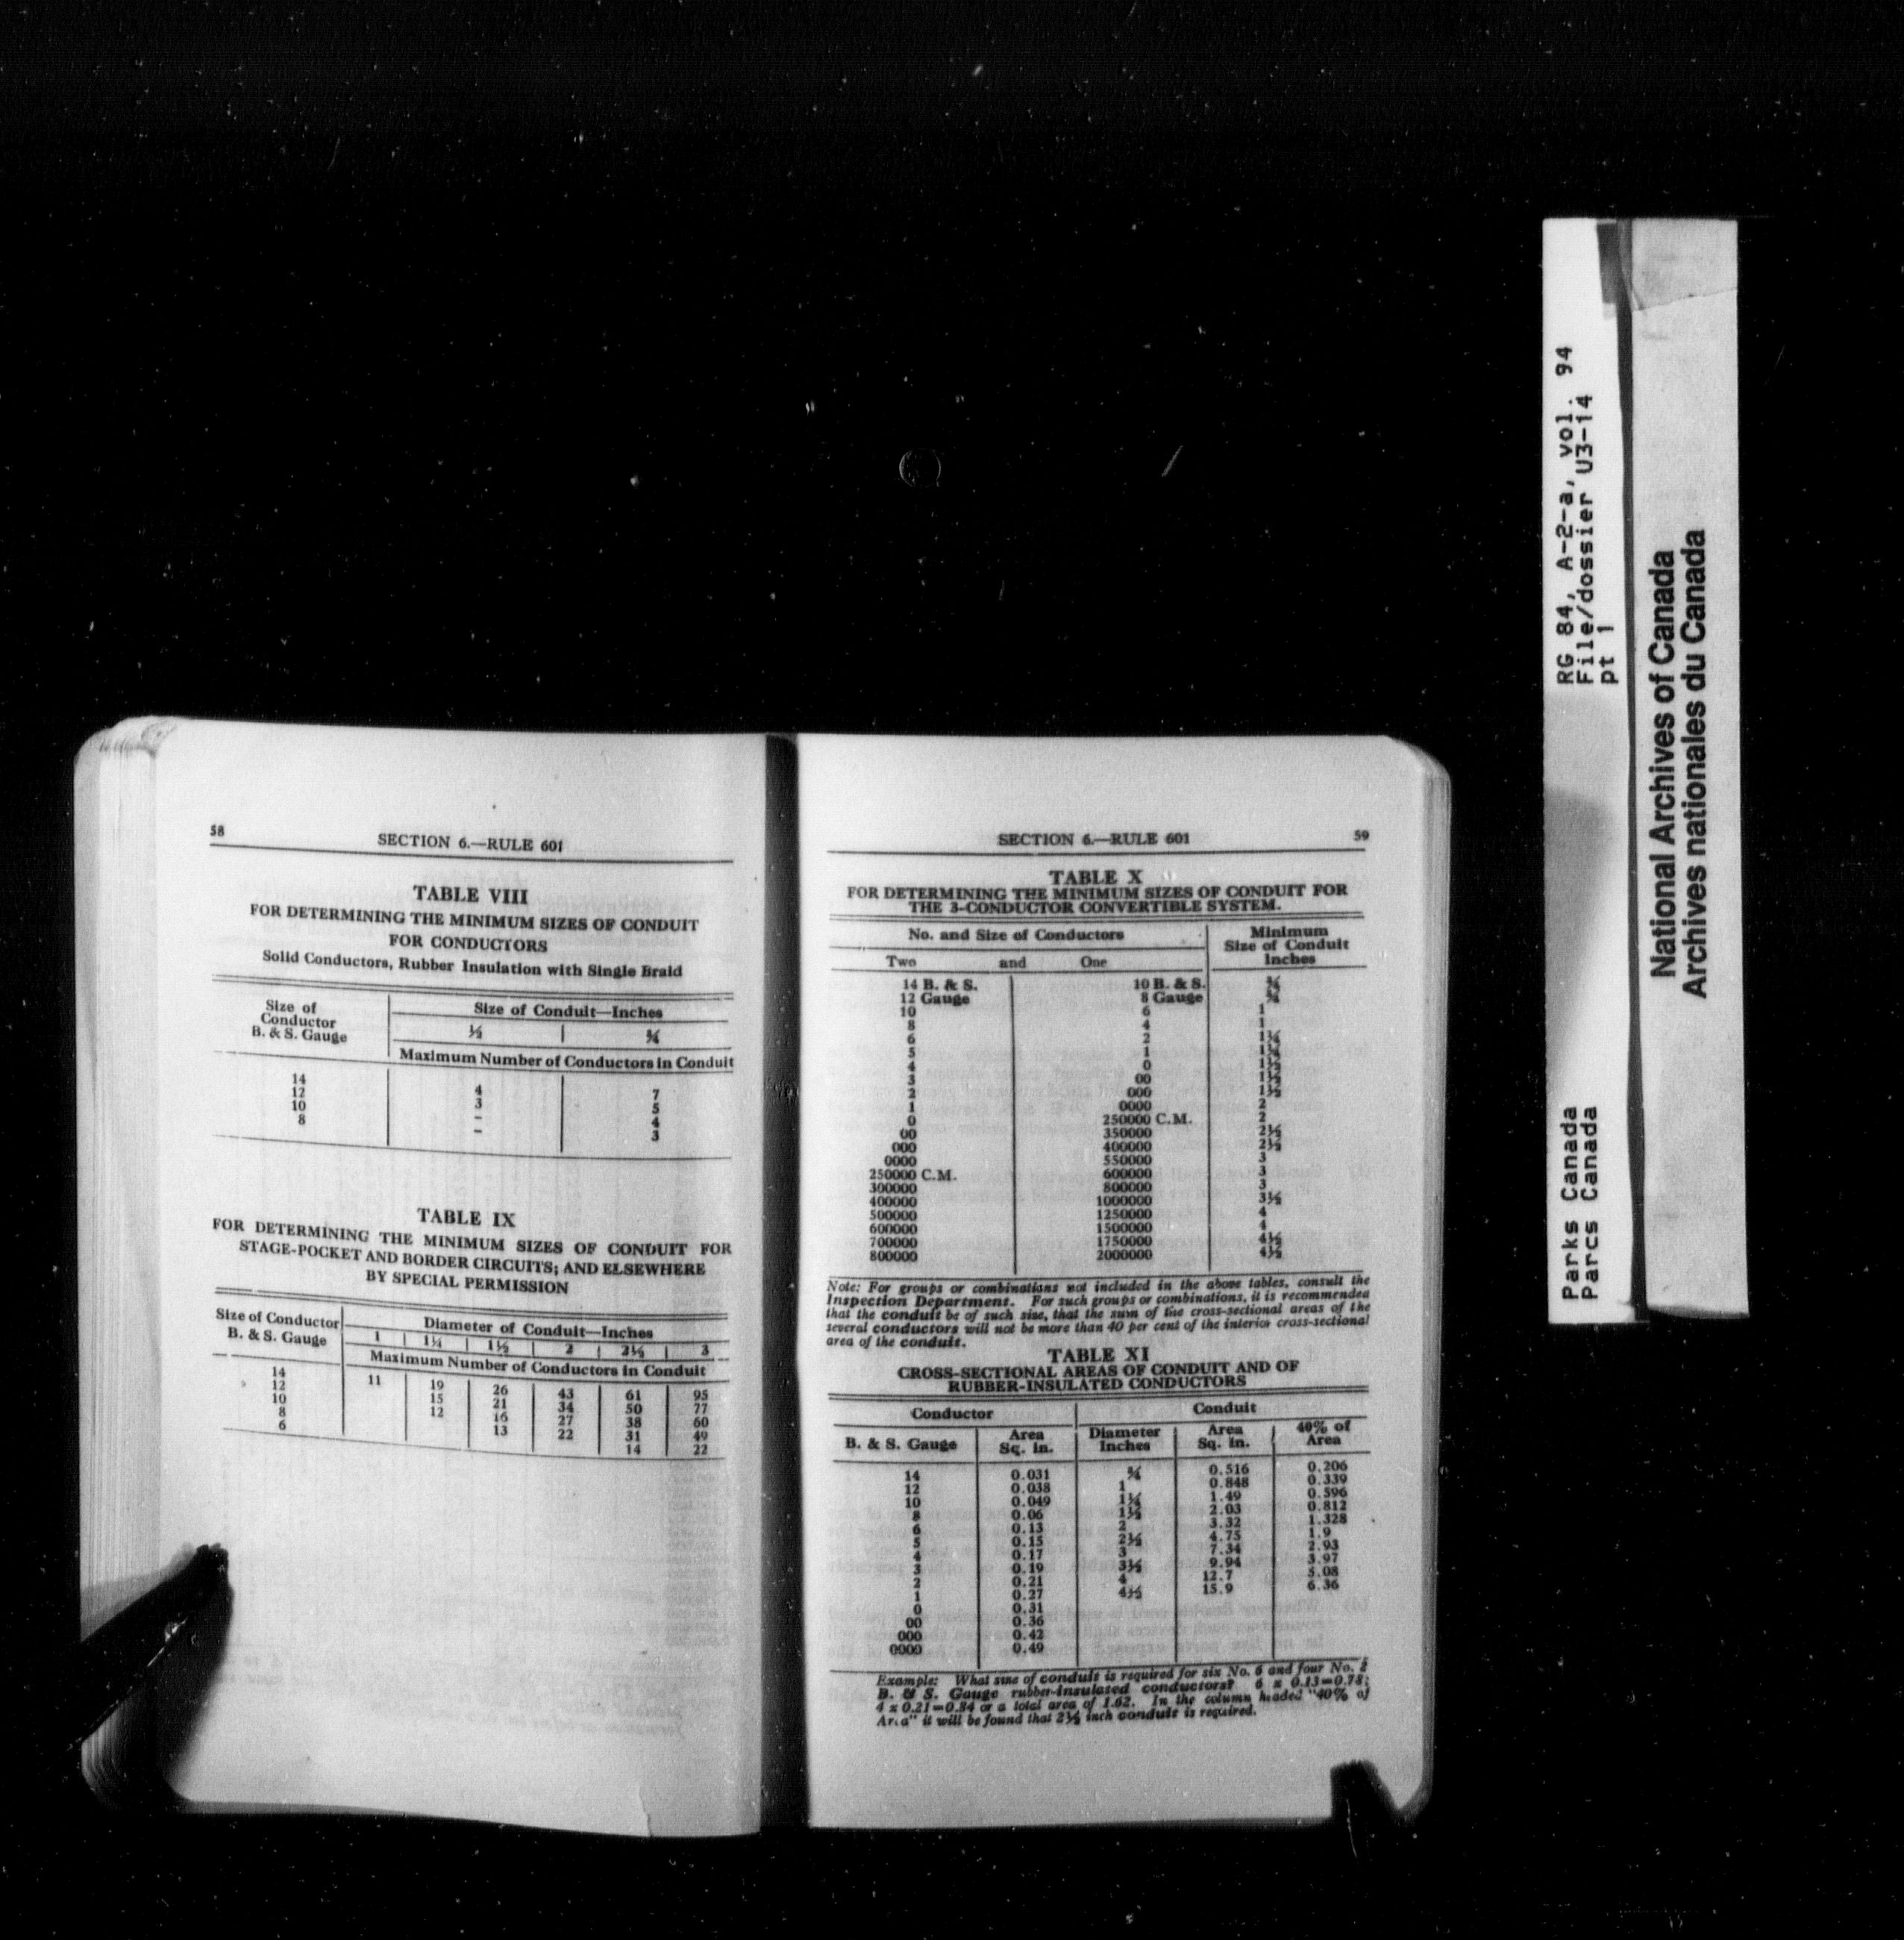 58
SECTION 6.—RULE 601
TABLE VIII
FOR DETERMINING THE MINIMUM SIZES OF CONDUIT
FOR CONDUCTORS
Solid Conductors, Rubber Insulation with Single Braid
Size of
Conductor
B. & S. Gauge
Size of Conduit—Inches
½ ¾
Maximum Number of Conductors in Conduit
14 4 7
12 3 5
10 – 4
8 – 3
TABLE IX
FOR DETERMINING THE MINIMUM SIZES OF CONDUIT FOR
STAGE-POCKET AND BORDER CIRCUITS; AND ELSEWHERE
BY SPECIAL PERMISSION
Size of Conductor
B. & S. Gauge
Diameter of Conduit—Inches
1 1¼ 1½ 2 2½ 3
Maximum Number of Conductors in Conduit
14 11 19 26 43 61 95
12 15 21 34 50 77
10 12 16 27 38 60
8 13 22 31 49
6 14 22
SECTION 6.—RULE 601
59
TABLE X
FOR DETERMINING THE MINIMUM SIZES OF CONDUIT FOR
THE 3-CONDUCTOR CONVERTIBLE SYSTEM.
No. and Size of Conductors
Minimum
Size of Conduit
Inches
Two and One
14 B. & S. 10 B. & S. ¾
12 Gauge 8 Gauge ¾
10 6 1
8 4 1
6 2 1¼
5 1 1¼
4 0 1½
3 00 1½
2 000 1½
1 0000 2
0 250000 C.M. 2
00 350000 2½
000 400000 2½
0000 550000 3
250000 C.M. 600000 3
300000 800000 3
400000 1000000 3½
500000 1250000 4
600000 1500000 4
700000 1750000 4½
800000 2000000 4½
Note: For groups or combinations not included in the above tables, consult the
Inspection Department. For such groups or combinations, it is recommended
that the conduit be of such size, that the sum of the cross-sectional areas of the
several conductors will not be more than 40 per cent of the interior cross-sectional
area of the conduit.
TABLE XI
CROSS-SECTIONAL AREAS OF CONDUIT AND OF
RUBBER-INSULATED CONDUCTORS
Conductor Conduit
B. & S. Gauge
Area
Sq. in.
Diameter
Inches
Area
Sq. in.
40% of
Area
14 0.031 ¾ 0.516 0.206
12 0.038 1 0.848 0.339
10 0.049 1¼ 1.49 0.596
8 0.06 1½ 2.03 0.812
6 0.13 2 3.32 1.328
5 0.15 2½ 4.75 1.9
4 0.17 3 7.34 2.93
3 0.19 3½ 9.94 3.97
2 0.21 4 12.7 5.08
1 0.27 4½ 15.9 6.36
0 0.31
00 0.36
000 0.42
0000 0.49
Example: What size of conduit is required for six No. 6 and four No. 2
B. & S. Gauge rubber-insulated conductors? 6 x 0.13=0.78;
4 x 0.21=0.84 or a total area of 1.62. In the column headed "40% of
Area" it will be found that 2½ inch conduit is required.
RG 84, A-2-a, vol. 94
File/dossier U3-14
pt 1
Parks Canada
Parcs Canada
National Archives of Canada
Archives nationales du Canada